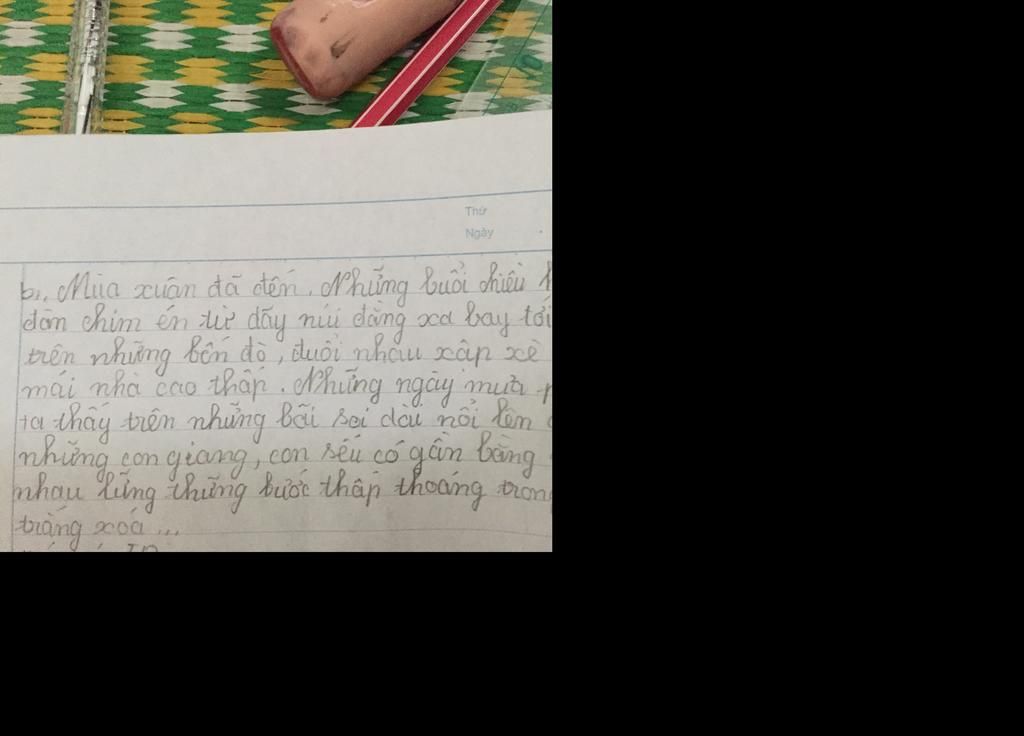 Thứ
Ngày
b, Mùa xuân đã đến. Những buổi chiều
đàn chim én từ dãy núi đằng xa bay tới
trên những bến đò, đuổi nhau xập xè
mái nhà cao thấp. Những ngày mưa
ta thấy trên những bãi soi dài nổi lên
những con giang, con sếu có gần bằng
nhau lững thững bước thấp thoáng tron
trắng xoá ...